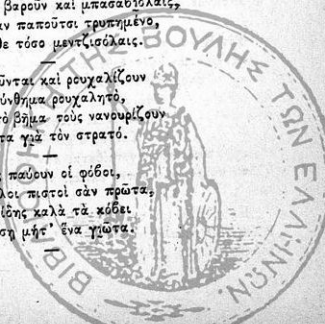 βαροῦν καὶ μπασαβιόλαις,
παποῦτσι τρυπημένο,
τόσο μεντζισόλαις.
καὶ ρουχαλίζουν
ρουχαλητὸ,
βῆμα τοὺς νανουρίζουν
γιὰ τὸν στρατό.
παύουν οἱ φόβοι,
πιστοὶ σὰν πρῶτα,
καλὰ τὰ κόβει
μήτ' ἕνα γιῶτα.
ΒΙΒΛΙΟΘΗΚΗ ΤΗΣ ΒΟΥΛΗΣ ΤΩΝ ΕΛΛΗΝΩΝ